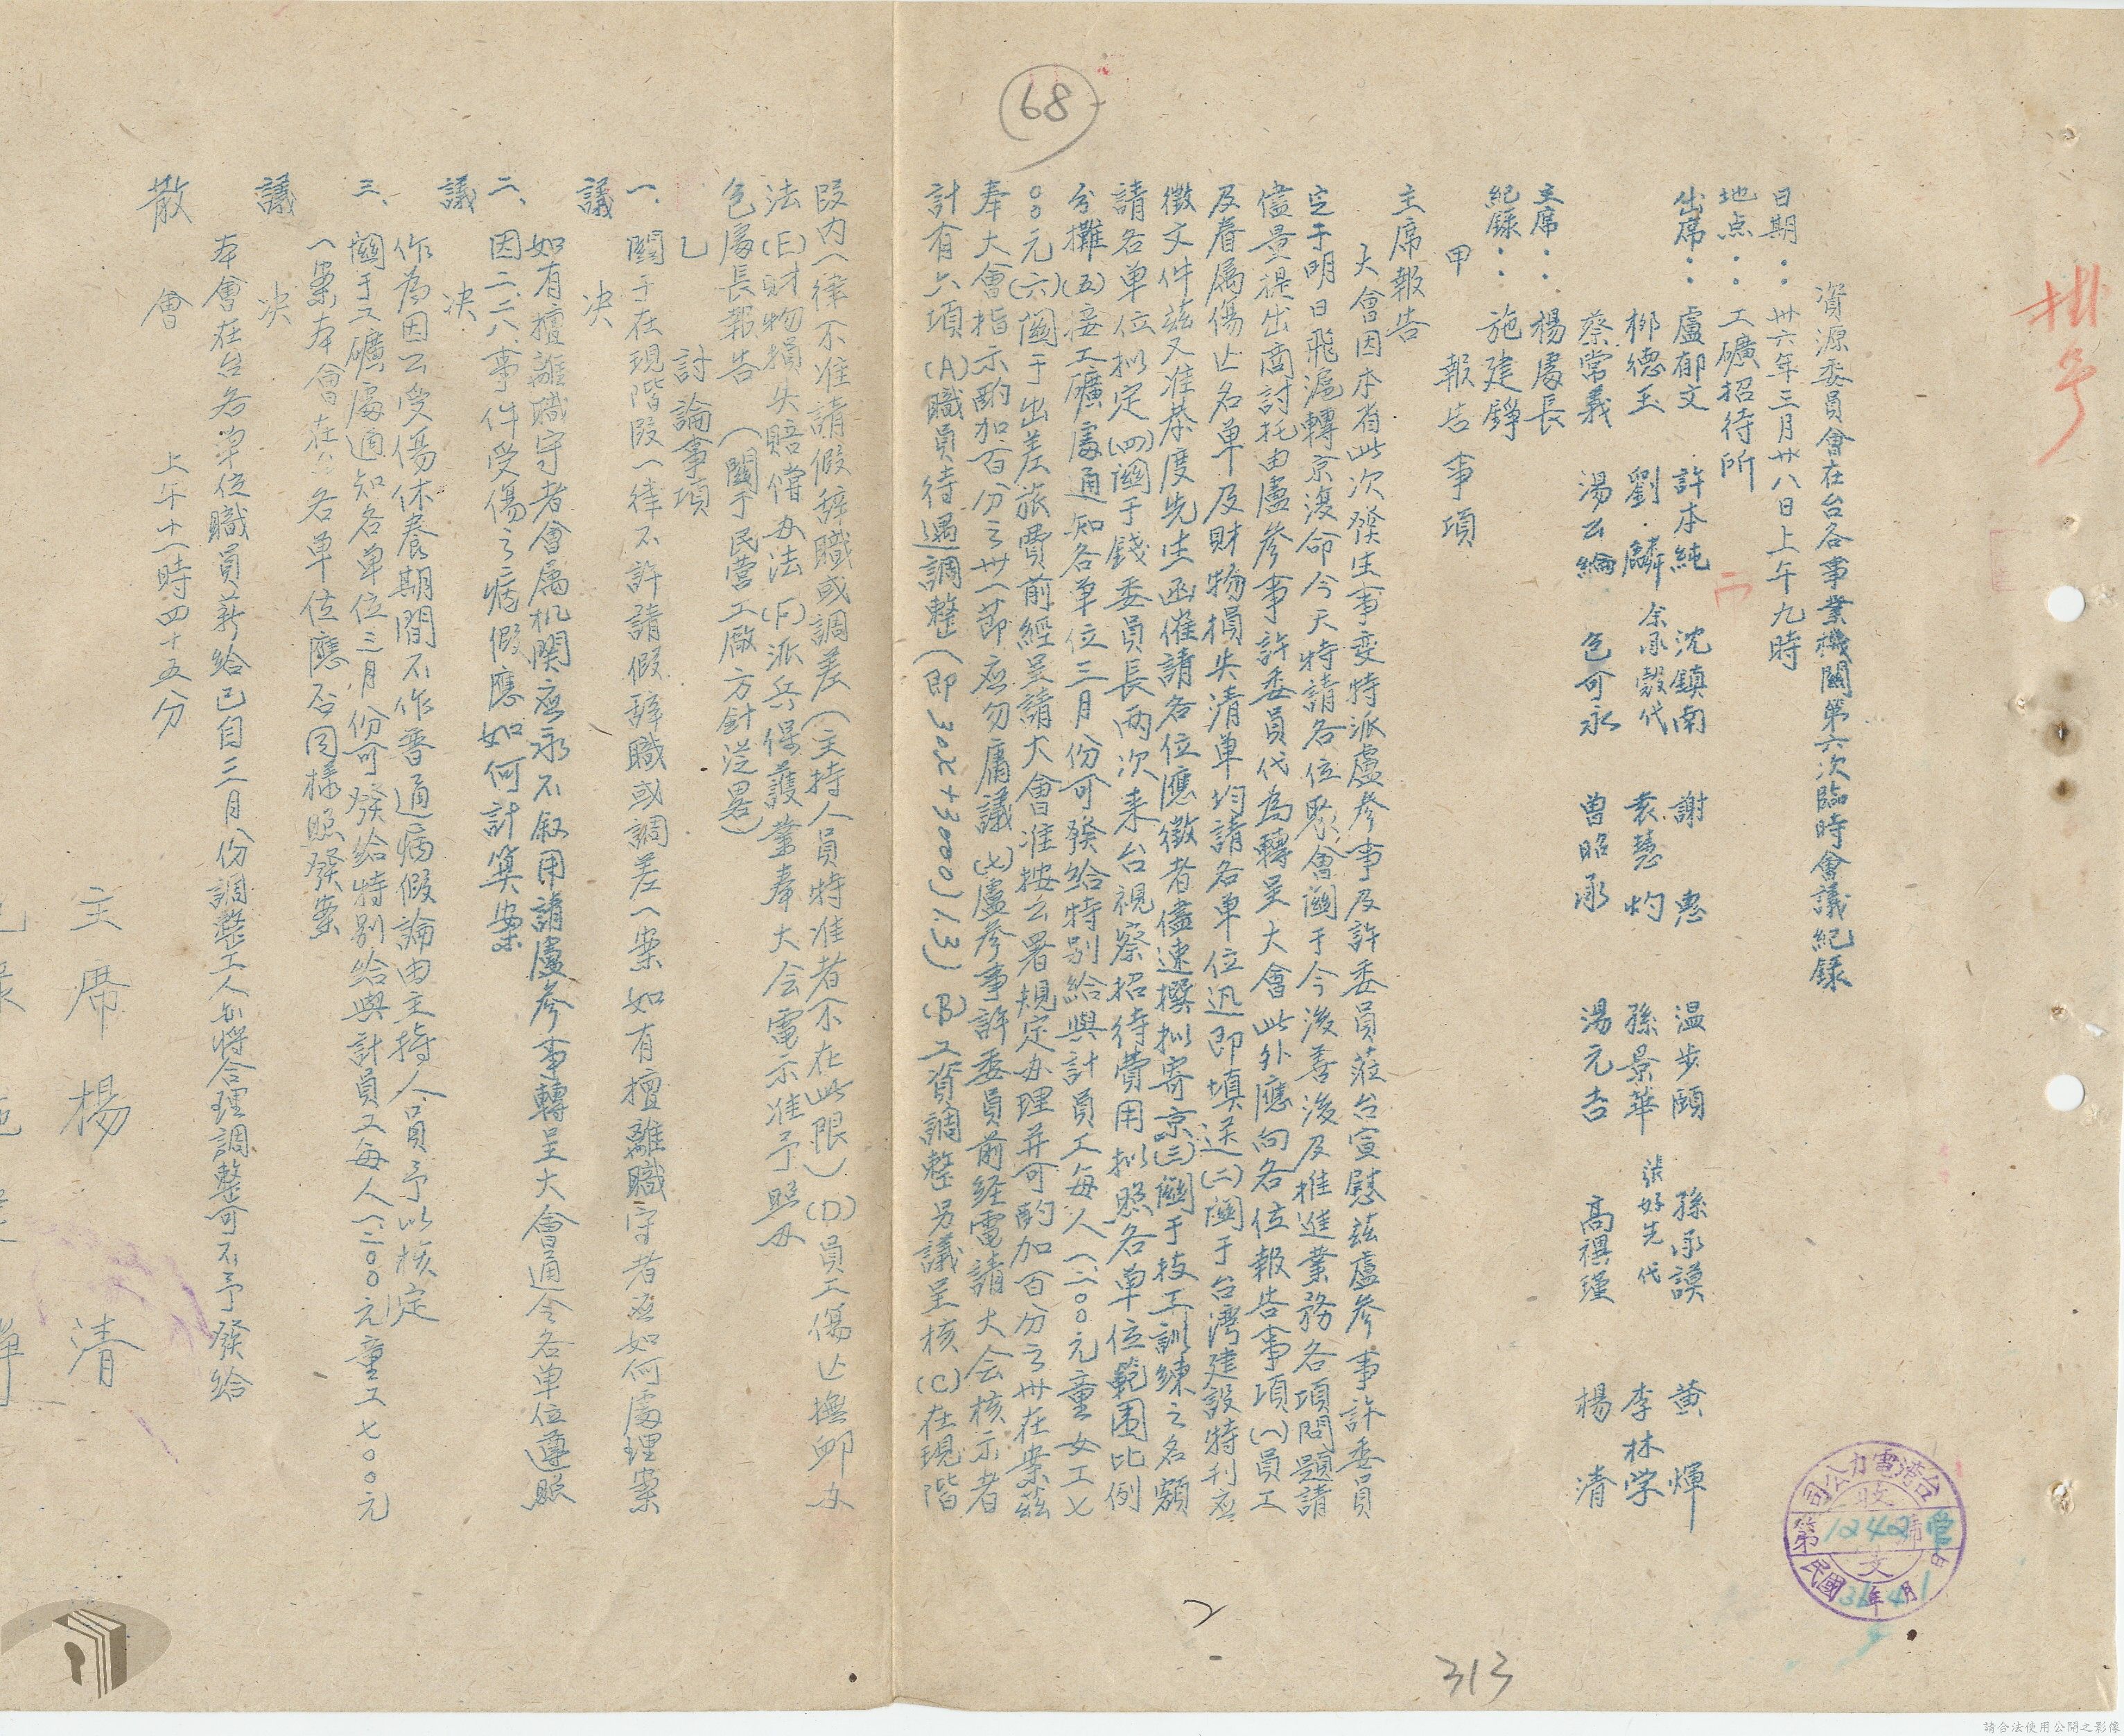 資源委員會在台各事業機關第六次臨時會議紀錄
日期：卅六年三月廿八日上午九時
地点：工礦招待所
出席：盧郁文 許本純 沈鎮南 謝惠 温步頤 孫承謨 黄煇
柳德玉 劉麟 余承毅代 袁慧灼 孫景華 張好先代 李林学
蔡常義 湯公綸 包可永 曾昭承 湯元吉 高禩瑾 楊清
主席：楊處長
紀錄：施建錚
甲 報告事項
主席報告
大會因本省此次發生事变特派盧參事及許委員莅台宣慰茲盧參事許委員
定于明日飛滬轉京復命今天特請各位聚會關于今後善後及推進業務各項問題請
儘量提出商討托由盧參事許委員代為轉呈大會此外應向各位報告事項(一)員工
及眷屬傷亡名单及財物損失清单均請各单位迅即填送(二)關于台灣建設特刊应
徵文件茲又准恭度先生函催請各位應徵者儘速撰拟寄京(三)關于技工訓練之名額
請各单位拟定(四)關于錢委員長两次来台視察招待費用拟照各单位範围比例
分攤(五)接工礦處通知各单位三月份可發給特别給與計員工每人一二〇〇元童女工七
〇〇元(六)關于出差旅費前經呈請大會准按公署規定办理并可酌加百分之卅在案茲
奉大會指示酌加百分之卅一節应勿庸議(七)盧參事許委員前经電請大会核示者
計有六項(A)職員待遇調整(即30x+3000)1.3)(B)工資調整另議呈核(C)在現階
段内一律不准請假辞職或調差(主持人員特准者不在此限)(D)員工傷亡撫卹办
法(E)財物損失賠償办法(F)派兵保護業奉大会電示准予照办
包處長報告(關于民营工廠方針从畧)
乙 討論事項
一、關于在現階段一律不許請假辞職或調差一案如有擅離職守者应如何處理案
議决
如有擅離職守者會属机関应永不叙用請盧參事轉呈大會通令各单位遵照
二、因二二八事件受傷之病假應如何計算案
議决
作為因公受傷休養期間不作普通病假論由主持人員予以核定
三、關于工礦處通知各单位三月份可發給特别給與計員工每人一二〇〇元童工七〇〇元
一案本會在台各单位應否同樣照發案
議决
本會在台各单位職員薪給已自三月份調整工人亦將合理調整可不予發給
散會 上午十一時四十五分
主席 楊清
68
批号
台湾電力公司
收文
第 12428 號
民國 36 年 4 月 1 日
2
313
請合法使用公開之影像